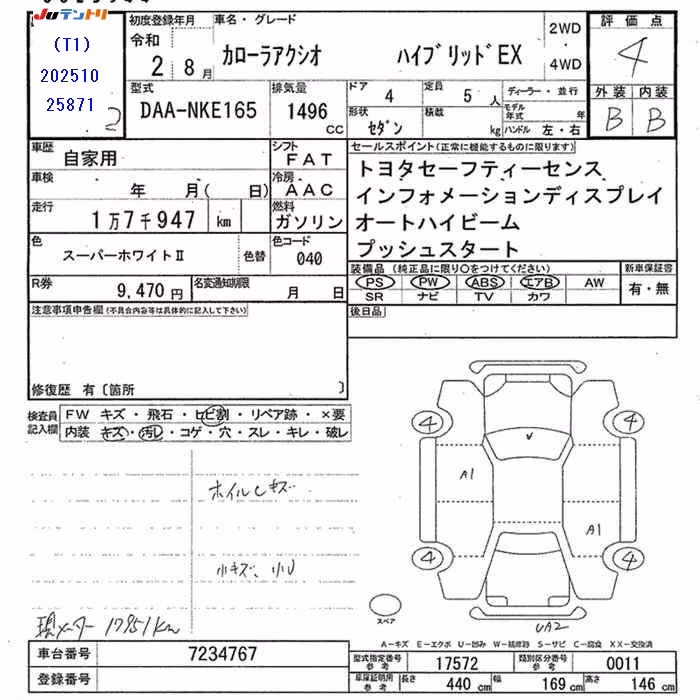 Juテントリ
(T1)
202510
25871
2
初度登録年月
令和
2 8月
車名・グレード
カローラアクシオ ハイブリッドEX
2WD
・
4WD
評価点
4
型式
DAA-NKE165
排気量
1496
CC
ドア
4
定員
5 人
形状
セダン
積載
kg
ディーラー・並行
モデル年式 年
ハンドル 左・右
外装 内装
B B
車歴
自家用
シフト
FAT
車検
年 月( 日)
冷房
AAC
走行
1万7千947 km
燃料
ガソリン
色
スーパーホワイトⅡ
色替
色コード
040
R券
9,470円
名変通知期限
月 日
セールスポイント(正常に機能するものに限ります)
トヨタセーフティーセンス
インフォメーションディスプレイ
オートハイビーム
プッシュスタート
装備品 (純正品に限り○をつけてください)
新車保証書
PS PW ABS エアB AW
有・無
SR ナビ TV カワ
注意事項申告欄(不具合内容等は具体的に記入して下さい)
後日品
修復歴 有〔箇所 〕
検査員
記入欄
FW キズ・飛石・ヒビ割・リペア跡・×要
内装 キズ・汚レ・コゲ・穴・スレ・キレ・破レ
ホイルキズ
小キズ、小U
現メーター 17951Km
4 4
A1
A1
4 4
スペア
UA2
A-キズ E-エクボ U-凹み W-補修跡 S-サビ C-腐食 XX-交換済
車台番号
7234767
登録番号
型式指定番号
参考
17572
類別区分番号
参考
0011
車庫証明用
参考
長さ 440 cm 幅 169 cm 高さ 146 cm